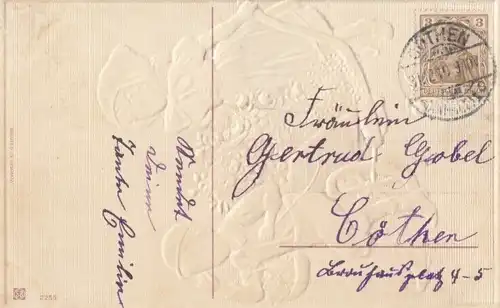 3 3
CÖTHEN
Deine
Tante Emilie
Fräulein
Gertrud Gobel
Cöthen
Brauhausplatz 4-5
2255